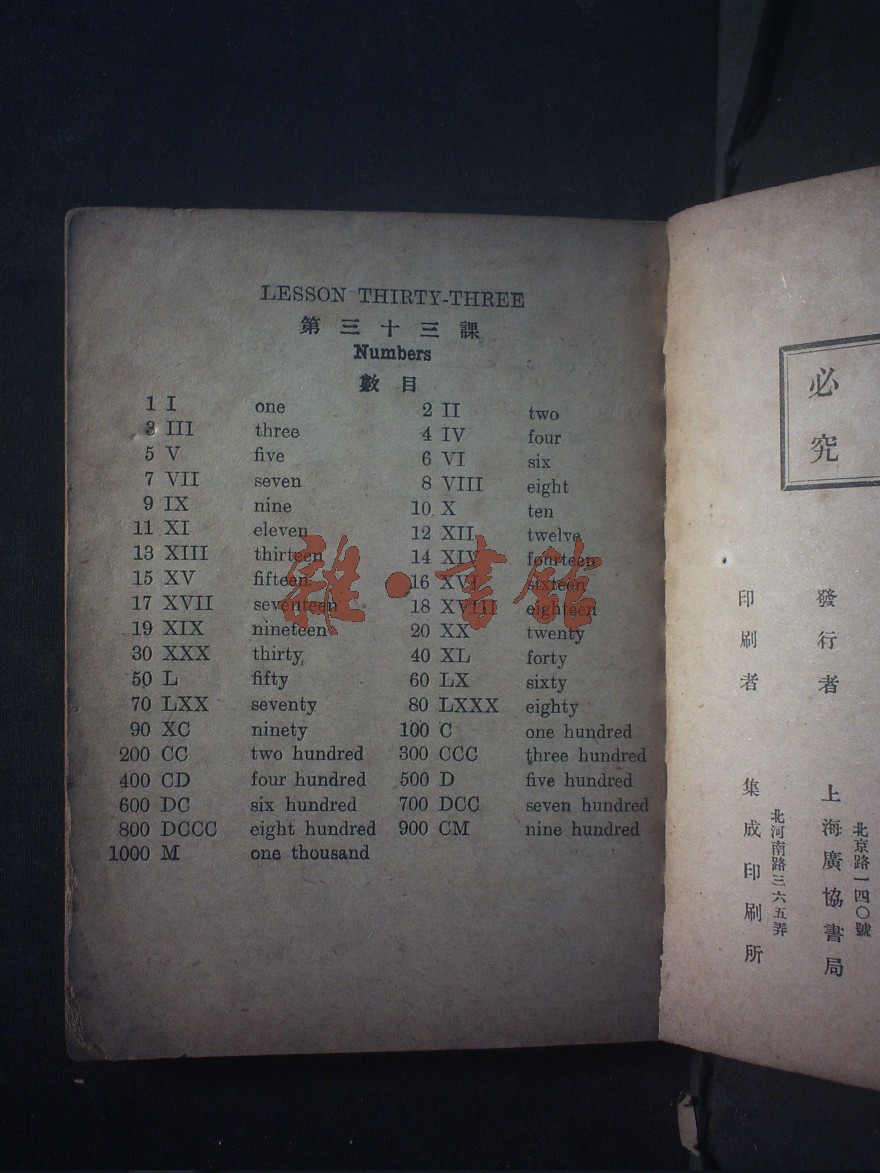 LESSON THIRTY-THREE
第三十三課
Numbers
數目
1 I one 2 II two
3 III three 4 IV four
5 V five 6 VI six
7 VII seven 8 VIII eight
9 IX nine 10 X ten
11 XI eleven 12 XII twelve
13 XIII thirteen 14 XIV fourteen
15 XV fifteen 16 XVI sixteen
17 XVII seventeen 18 XVIII eighteen
19 XIX nineteen 20 XX twenty
30 XXX thirty 40 XL forty
50 L fifty 60 LX sixty
70 LXX seventy 80 LXXX eighty
90 XC ninety 100 C one hundred
200 CC two hundred 300 CCC three hundred
400 CD four hundred 500 D five hundred
600 DC six hundred 700 DCC seven hundred
800 DCCC eight hundred 900 CM nine hundred
1000 M one thousand
雜·書館
必究
北京路一四〇號
發行者 上海廣協書局
北河南路三六五弄
印刷者 集成印刷所